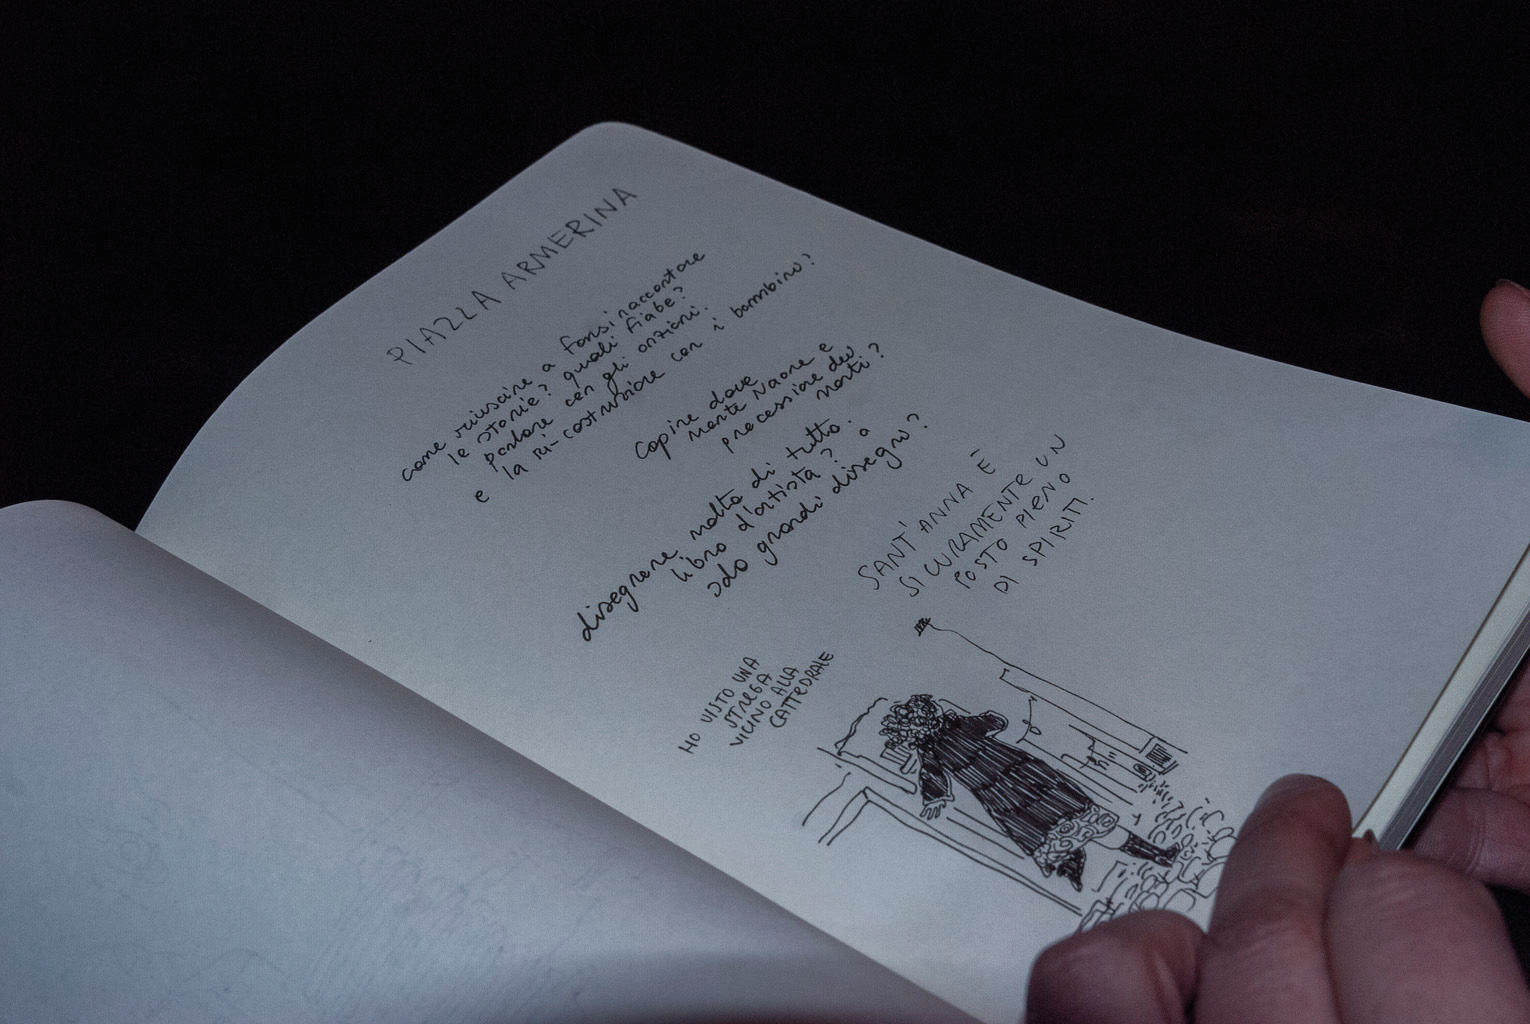 PIAZZA ARMERINA
come riuscire a farsi raccontare
le storie? quali fiabe?
parlare con gli anziani.
e la ri-costruzione con i bambino?
Capire dove
monte Naone e
processione dei
morti?
disegnare molto di tutto.
libro d'artista? a
solo grandi disegno?
SANT'ANNA È
SICURAMENTE UN
POSTO PIENO
DI SPIRITI.
HO VISTO UNA
STREGA
VICINO ALLA
CATTEDRALE